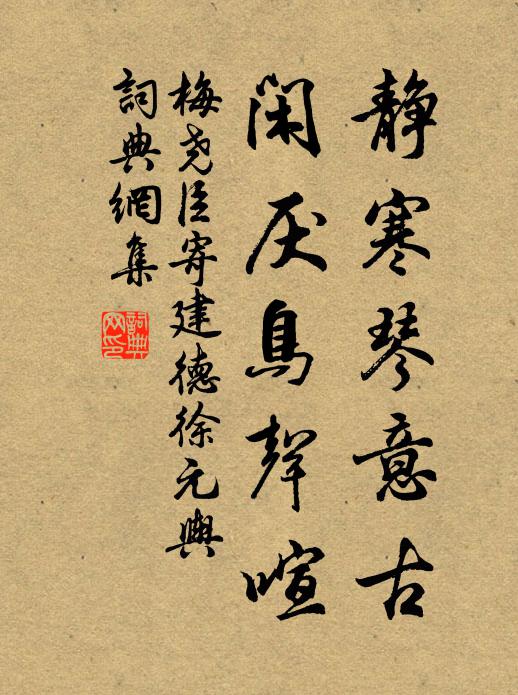 静寒琴意古
閑厌鳥聲喧
梅尧臣寄建德徐元輿
詞典網集
詞典网印